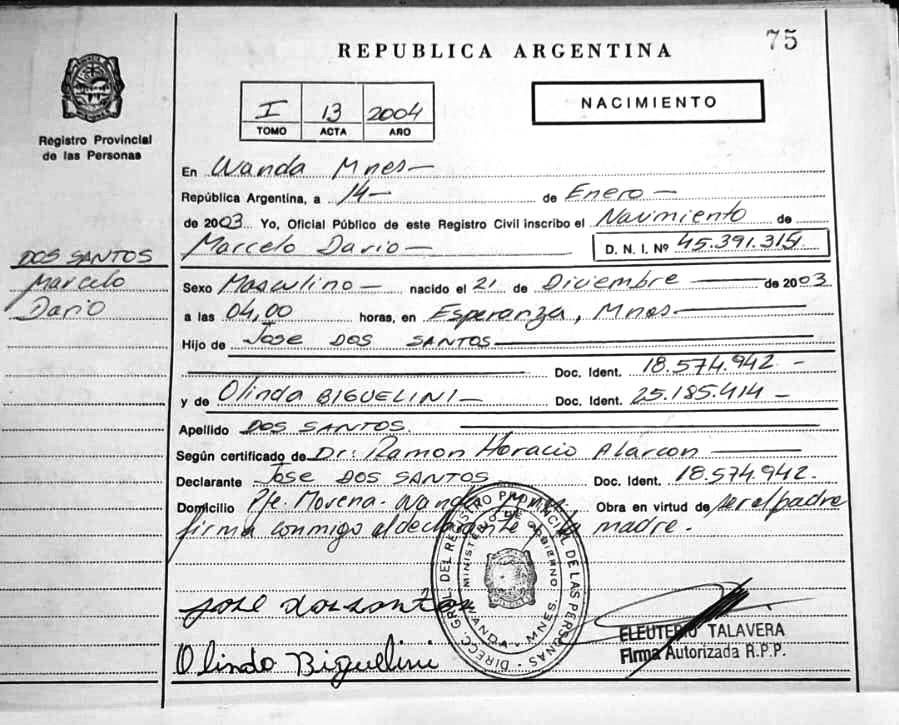 75
REPUBLICA ARGENTINA
NACIMIENTO
I 13 2004
TOMO ACTA AÑO
Registro Provincial
de las Personas
En Wanda Mnes
República Argentina, a 14 de Enero
de 2003 Yo, Oficial Público de este Registro Civil inscribo el Nacimiento de
Marcelo Dario D. N. I. Nº 45.391.315
DOS SANTOS
Marcelo
Dario
Sexo Masculino nacido el 21 de Diciembre de 2003
a las 04,00 horas, en Esperanza, Mnes
Hijo de Jose DOS SANTOS
Doc. Ident. 18.574.942
y de Olinda BIGUELINI Doc. Ident. 25.185.414
Apellido DOS SANTOS.
Según certificado de Dr: Ramon Horacio Alarcon
Declarante Jose DOS SANTOS Doc. Ident. 18.574.942.
Domicilio Pje. Morena - Wanda Mnes Obra en virtud de ser el padre
firma conmigo el declarante y la madre.
DIREC. GRAL. DEL REGISTRO PROVINCIAL DE LAS PERSONAS
MINISTERIO DE GOBIERNO
WANDA - MNES.
jose dos santos
Olinda Biguelini
ELEUTERIO TALAVERA
Firma Autorizada R.P.P.